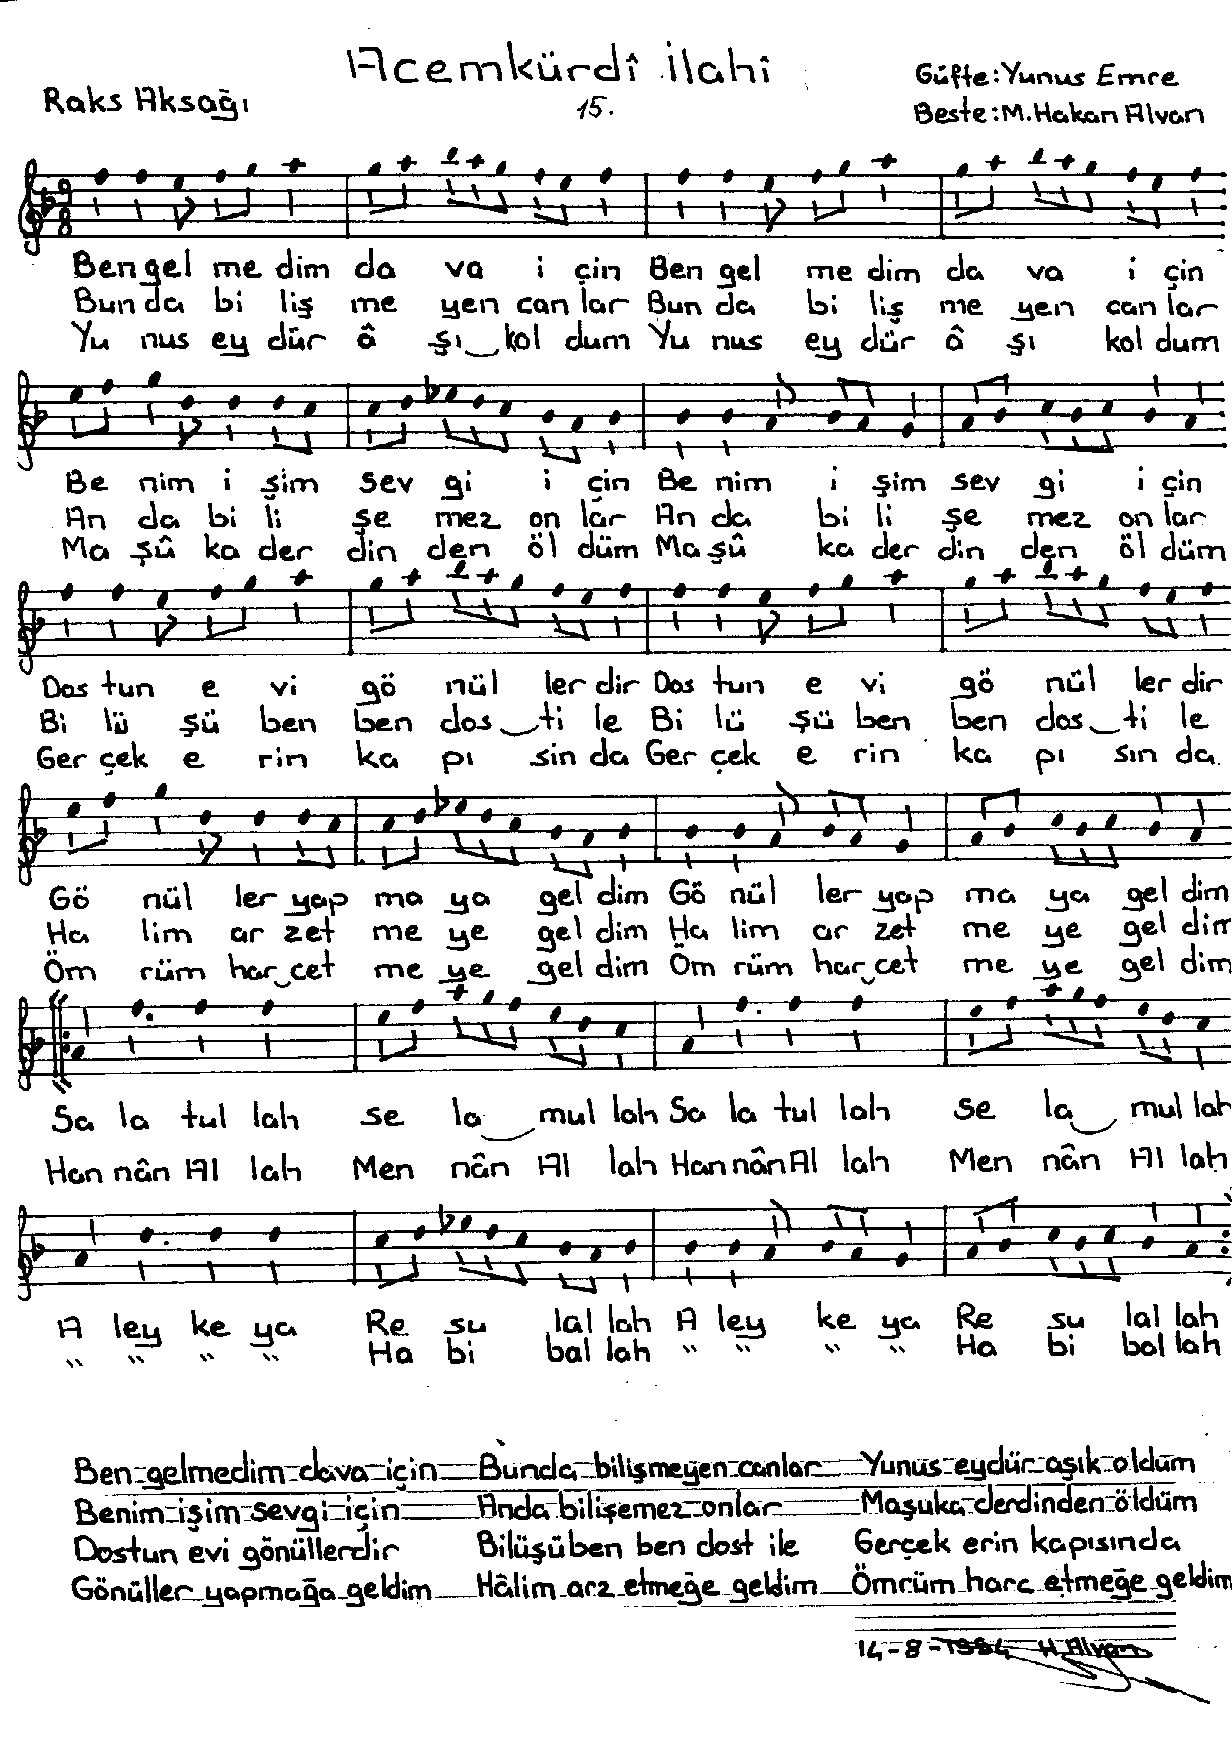 Acemkürdî İlahî
Güfte: Yunus Emre
Raks Aksağı
15.
Beste: M. Hakan Alvan
9
8
Ben gel me dim da va i çin Ben gel me dim da va i çin
Bun da bi liş me yen can lar Bun da bi liş me yen can lar
Yu nus ey dür â şı kol dum Yu nus ey dür â şı kol dum
Be nim i şim sev gi i çin Be nim i şim sev gi i çin
An da bi li şe mez on lar An da bi li şe mez on lar
Ma şû ka der din den öl düm Ma şû ka der din den öl düm
Dos tun e vi gö nül ler dir Dos tun e vi gö nül ler dir
Bi lü şü ben ben dos ti le Bi lü şü ben ben dos ti le
Ger çek e rin ka pı sın da Ger çek e rin ka pı sın da.
Gö nül ler yap ma ya gel dim Gö nül ler yap ma ya gel dim
Ha lim ar zet me ye gel dim Ha lim ar zet me ye gel dim
Öm rüm har cet me ye gel dim Öm rüm har cet me ye gel dim
Sa la tul lah se la mul lah Sa la tul lah se la mul lah
Han nân Al lah Men nân Al lah Han nân Al lah Men nân Al lah
A ley ke ya Re su lal lah A ley ke ya Re su lal lah
" " " " Ha bi bal lah " " " " Ha bi bal lah
Ben gelmedim dava için Bunda bilişmeyen canlar Yunus eydür aşık oldüm
Benim işim sevgi için Anda bilişemez onlar Maşuka derdinden öldüm
Dostun evi gönüllerdir Bilüşüben ben dost ile Gerçek erin kapısında
Gönüller yapmağa geldim Hâlim arz etmeğe geldim Ömrüm harc etmeğe geldim
14-8-1994 H. Alvan